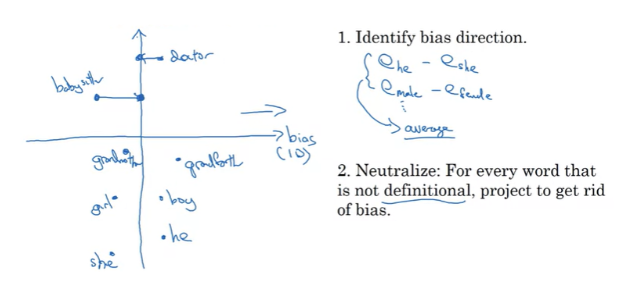 doctor
babysitter
bias
(1D)
grandmoth
grandfath
girl
boy
he
she
1. Identify bias direction.
e he - e she
e male - e female
⋮
average
2. Neutralize: For every word that
is not definitional, project to get rid
of bias.